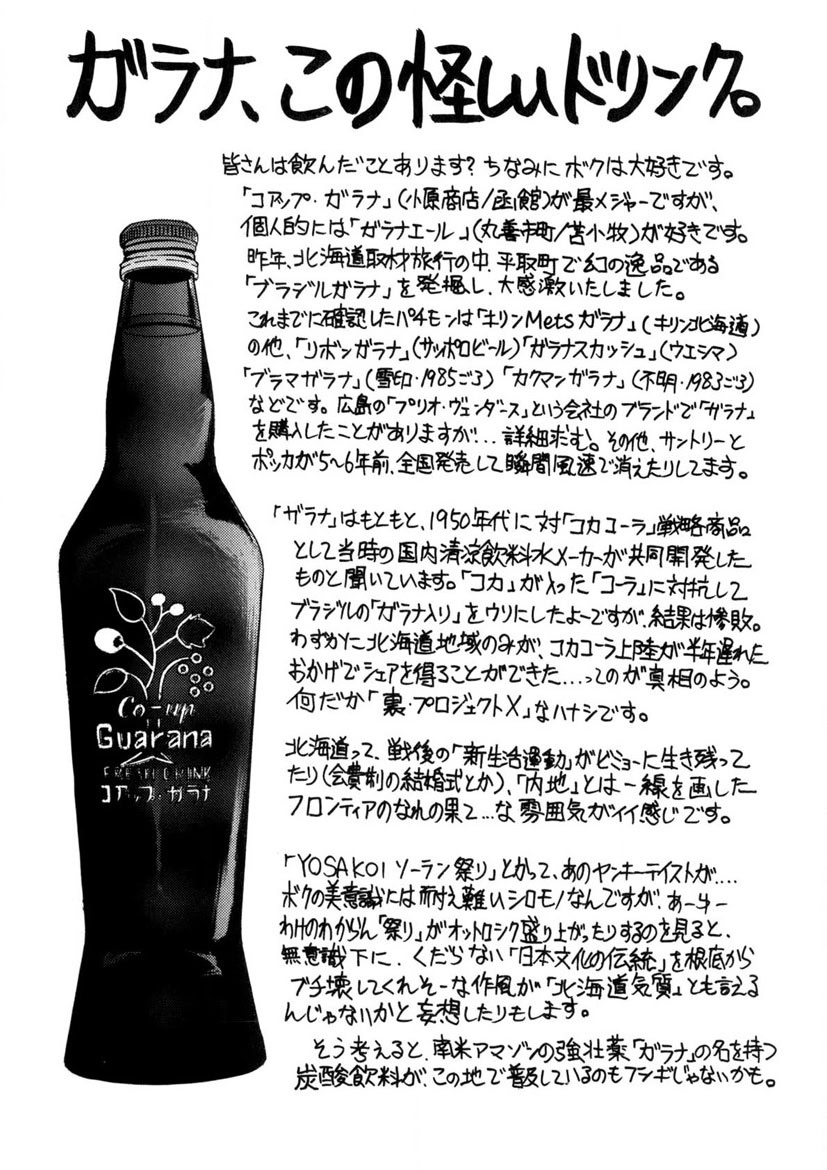 ガラナ、この怪しいドリンク。
皆さんは飲んだことあります?ちなみにボクは大好きです。
「コアップ・ガラナ」(小原商店/函館)が最メジャーですが、
個人的には「ガラナエール」(丸善市町/苫小牧)が好きです。
昨年、北海道取材旅行の中、平取町で幻の逸品である
「ブラジルガラナ」を発掘し、大感激いたしました。
これまでに確認したパチモンは「キリンMetsガラナ」(キリン北海道)
の他、「リボンガラナ」(サッポロビール)「ガラナスカッシュ」(ウエシマ)
「ブラマガラナ」(雪印・1985ごろ)「カクマンガラナ」(不明・1983ごろ)
などです。広島の「プリオ・ヴェンダース」という会社のブランドで「ガラナ」
を購入したことがありますが…詳細求む。その他、サントリーと
ポッカが5〜6年前、全国発売して瞬間風速で消えたりしてます。
「ガラナ」はもともと、1950年代に対「コカコーラ」戦略商品
として当時の国内清涼飲料水メーカーが共同開発した
ものと聞いています。「コカ」が入った「コーラ」に対抗して
ブラジルの「ガラナ入り」をウリにしたよーですが、結果は惨敗。
わずかに北海道地域のみが、コカコーラ上陸が半年遅れた
おかげでシェアを得ることができた…ってのが真相のよう。
何だか「裏・プロジェクトX」なハナシです。
北海道って、戦後の「新生活運動」がビミョーに生き残って
たり(会費制の結婚式とか)、「内地」とは一線を画した
フロンティアのなれの果て…な雰囲気がイイ感じです。
「YOSAKOI ソーラン祭り」とかって、あのヤンキーテイストが….
ボクの美意識には耐え難いシロモノなんですが、あーゆー
わけのわからん「祭り」がオットロシク盛り上がったりするのを見ると、
無意識下に、くだらない「日本文化の伝統」を根底から
ブチ壊してくれそーな作風が「北海道気質」とも言える
んじゃないかと妄想したりもします。
そう考えると、南米アマゾンの強壮薬「ガラナ」の名を持つ
炭酸飲料が、この地で普及しているのもフシギじゃないかも。
Co-up
Guarana
コアップ・ガラナ